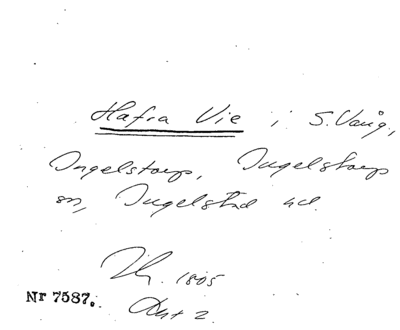 Hafra Vie i S. Vång,
Ingelstorp, Ingelstorps
sn, Ingelstad hd.
1805
Akt 2
Nr 7587.